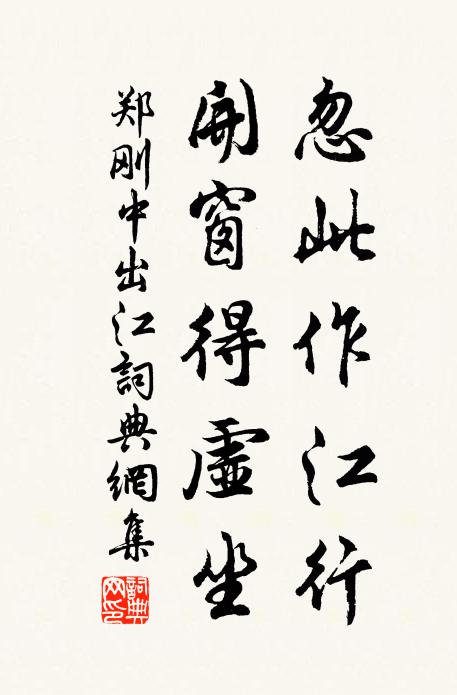 忽此作江行
開窗得虛坐
郑刚中出江詞典網集
詞典网印